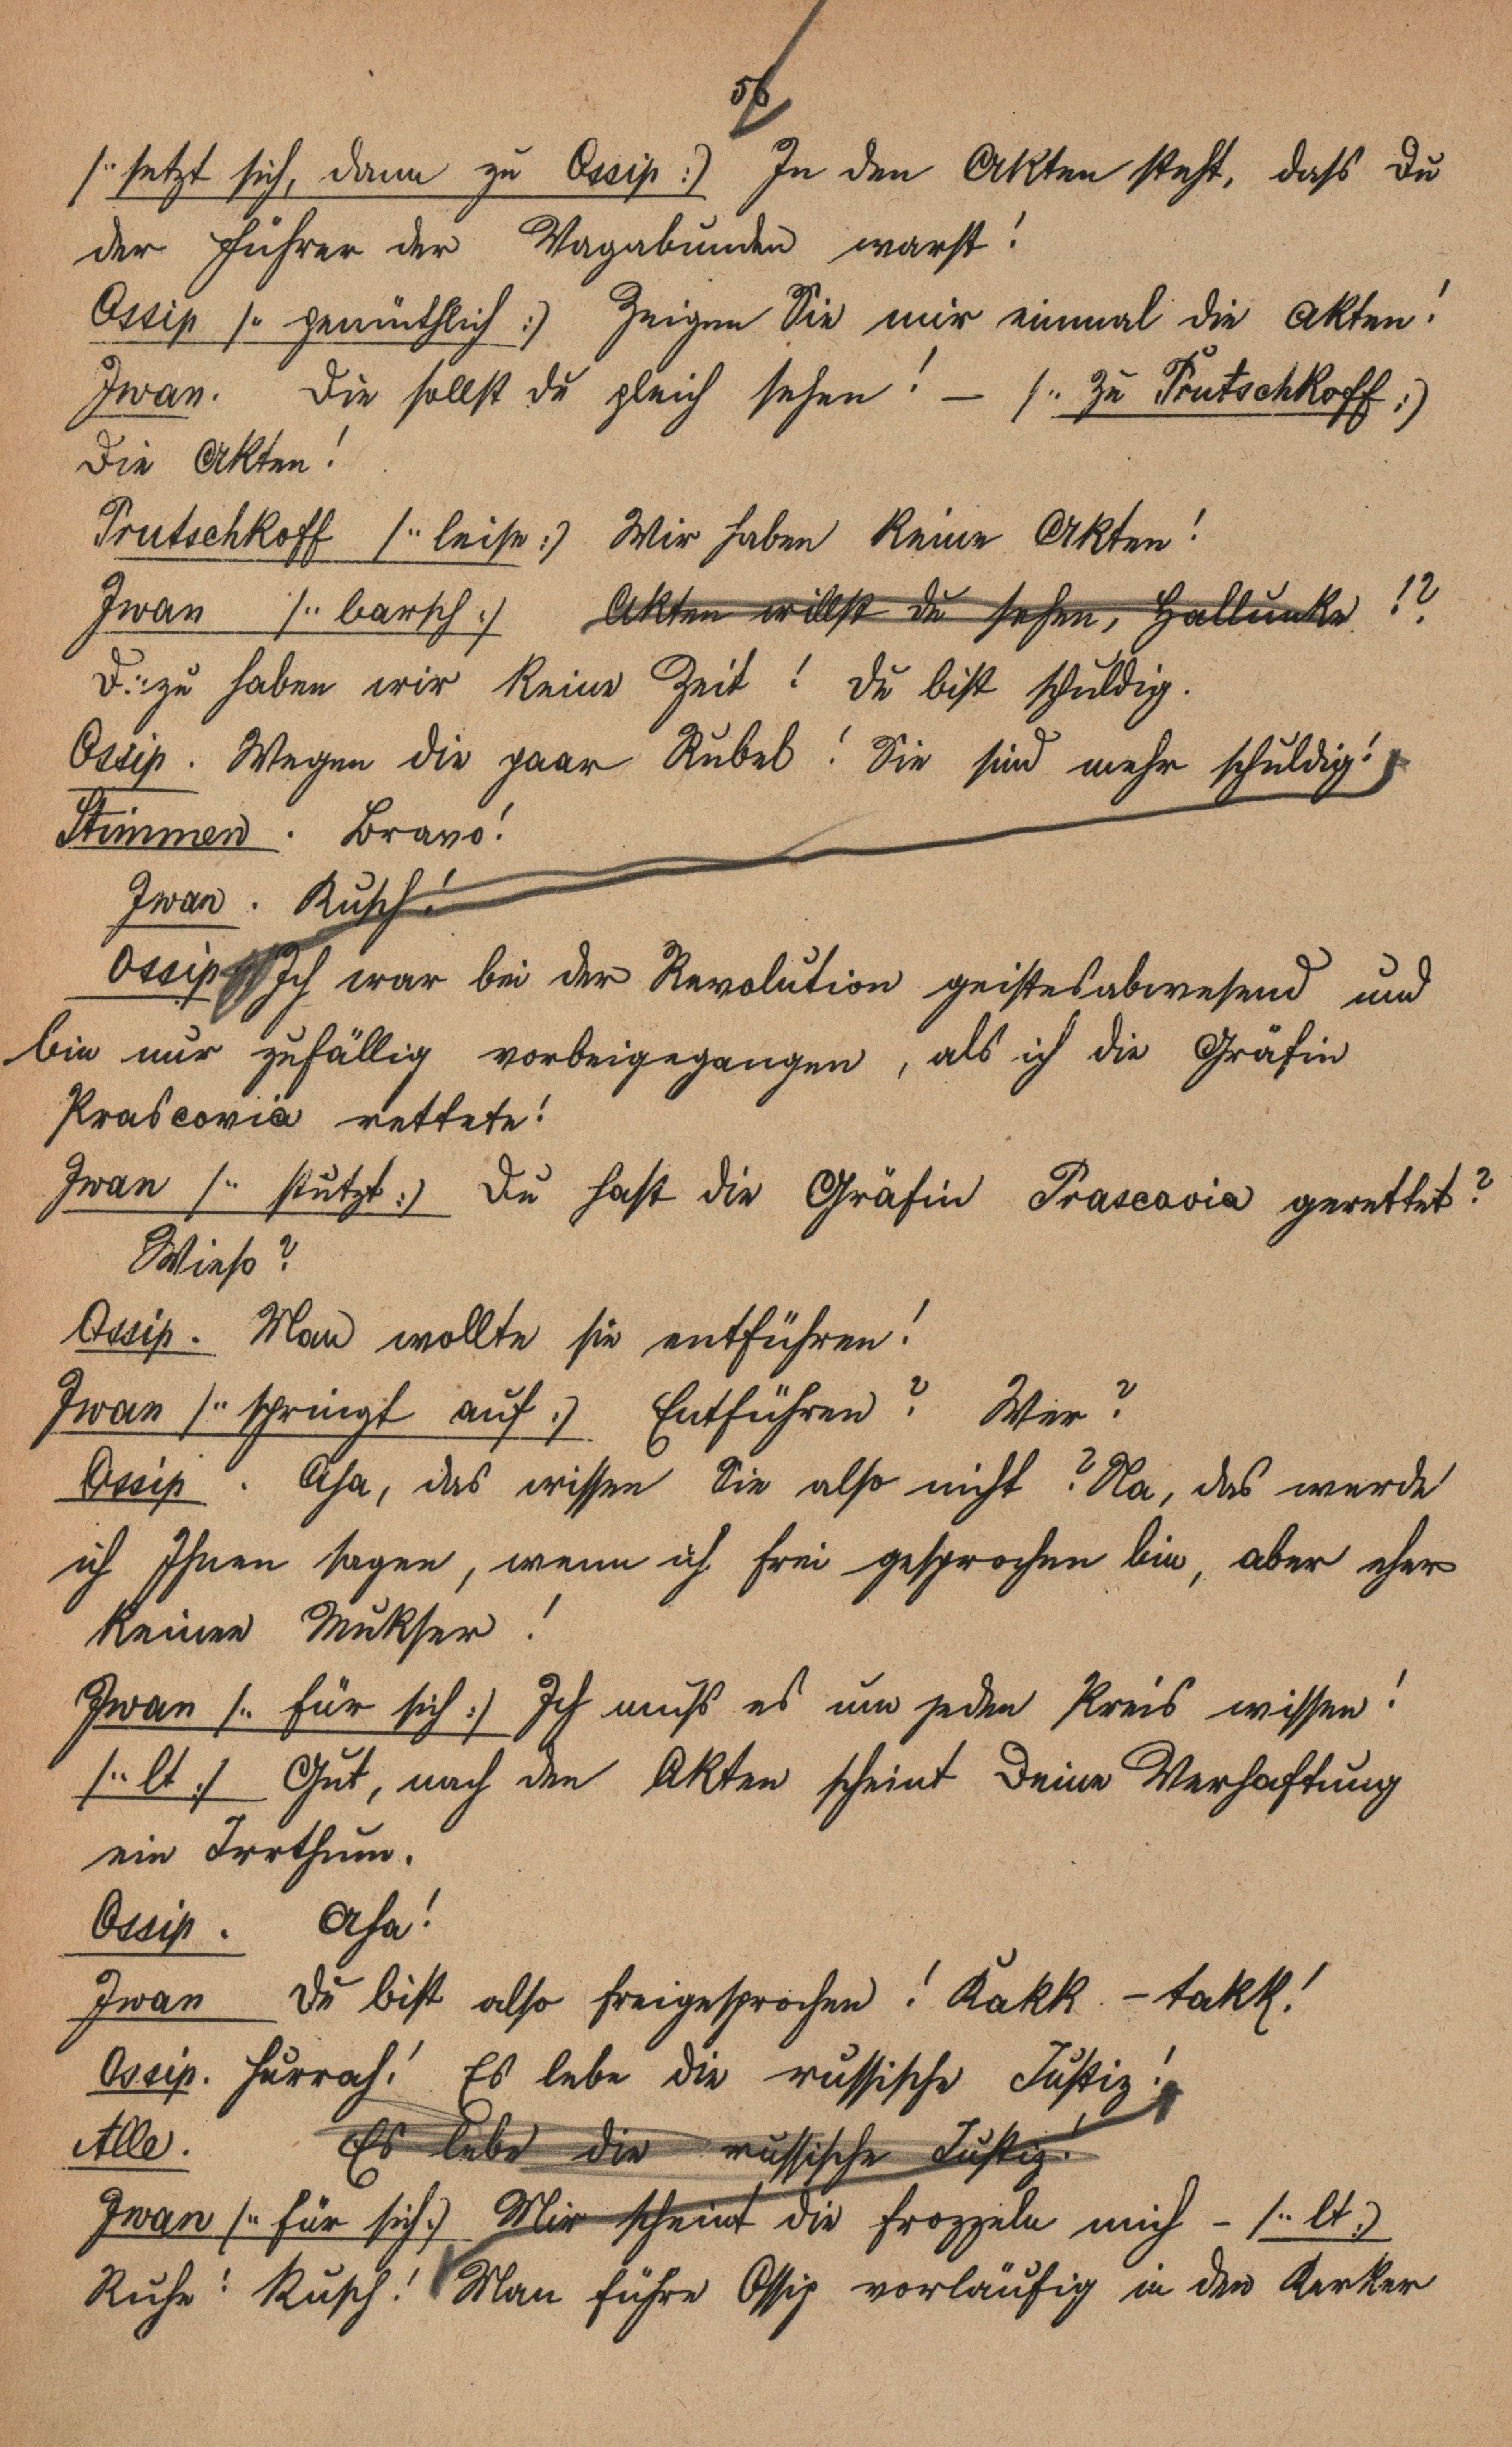 56
/: setzt sich, dann zu Ossip :/ In den Akten steht, dass Du
der Führer der Vagabunden warst!
Ossip /: gemüthlich :/ Zeigen Sie mir einmal die Akten!
Iwan. Die sollst du gleich sehen! — /: zu Prutschkoff :/
Die Akten!
Prutschkoff /: leise :/ Wir haben keine Akten!
Iwan /: barsch :/ Akten willst du sehen, Hallunke!?
Dazu haben wir keine Zeit! Du bist schuldig.
Ossip. Wegen die paar Rubel! Sie sind mehr schuldig!
Stimmen. Bravo!
Iwan. Kusch!
Ossip Ich war bei der Revolution geistesabwesend und
bin nur zufällig vorbeigegangen, als ich die Gräfin
Prascovia rettete!
Iwan /: stutzt :/ Du hast die Gräfin Prascovia gerettet?
Wieso?
Ossip. Man wollte sie entführen!
Iwan /: springt auf :/ Entführen? Wer?
Ossip. Aha, das wissen Sie also nicht? Na, das werde
ich Ihnen sagen, wenn ich frei gesprochen bin, aber eher
keinen Mukser!
Iwan /: für sich :/ Ich muss es um jeden Preis wissen!
/: lt :/ Gut, nach den Akten scheint Deine Verhaftung
ein Irrthum.
Ossip. Aha!
Iwan Du bist also freigesprochen! Kakk - takk!
Ossip. Hurrah! Es lebe die russische Justiz!
Alle. Es lebe die russische Justiz!
Iwan /: für sich :/ Mir scheint die frozzeln mich - /: lt :/
Ruhe! Kusch! Man führe Ossip vorläufig in den Kerker